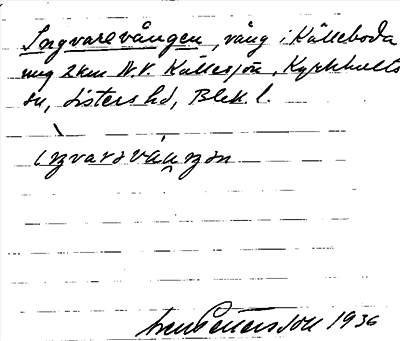 Ingvarsvången, vång i Källeboda
mg 2 km N.V. Källesjön, Kyrkhults
sn, Listers hd, Blek. l.
ìŋvarsváŋən
Sven Pettersson 1936